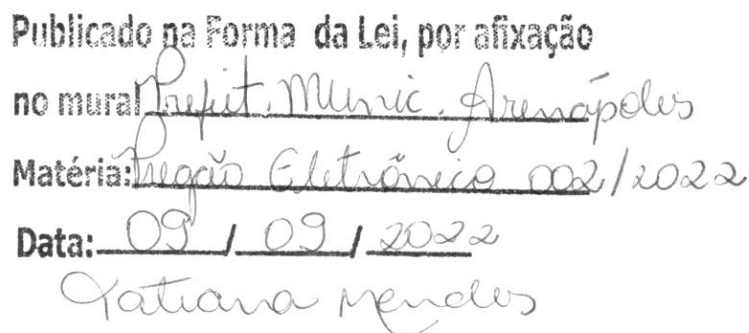 Publicado na Forma da Lei, por afixação
no mural Prefeit. Munic. Arenápoles
Matéria: Pregão Eletrônico 002/2022
Data: 09 / 09 / 2022
Tatiana Mendes